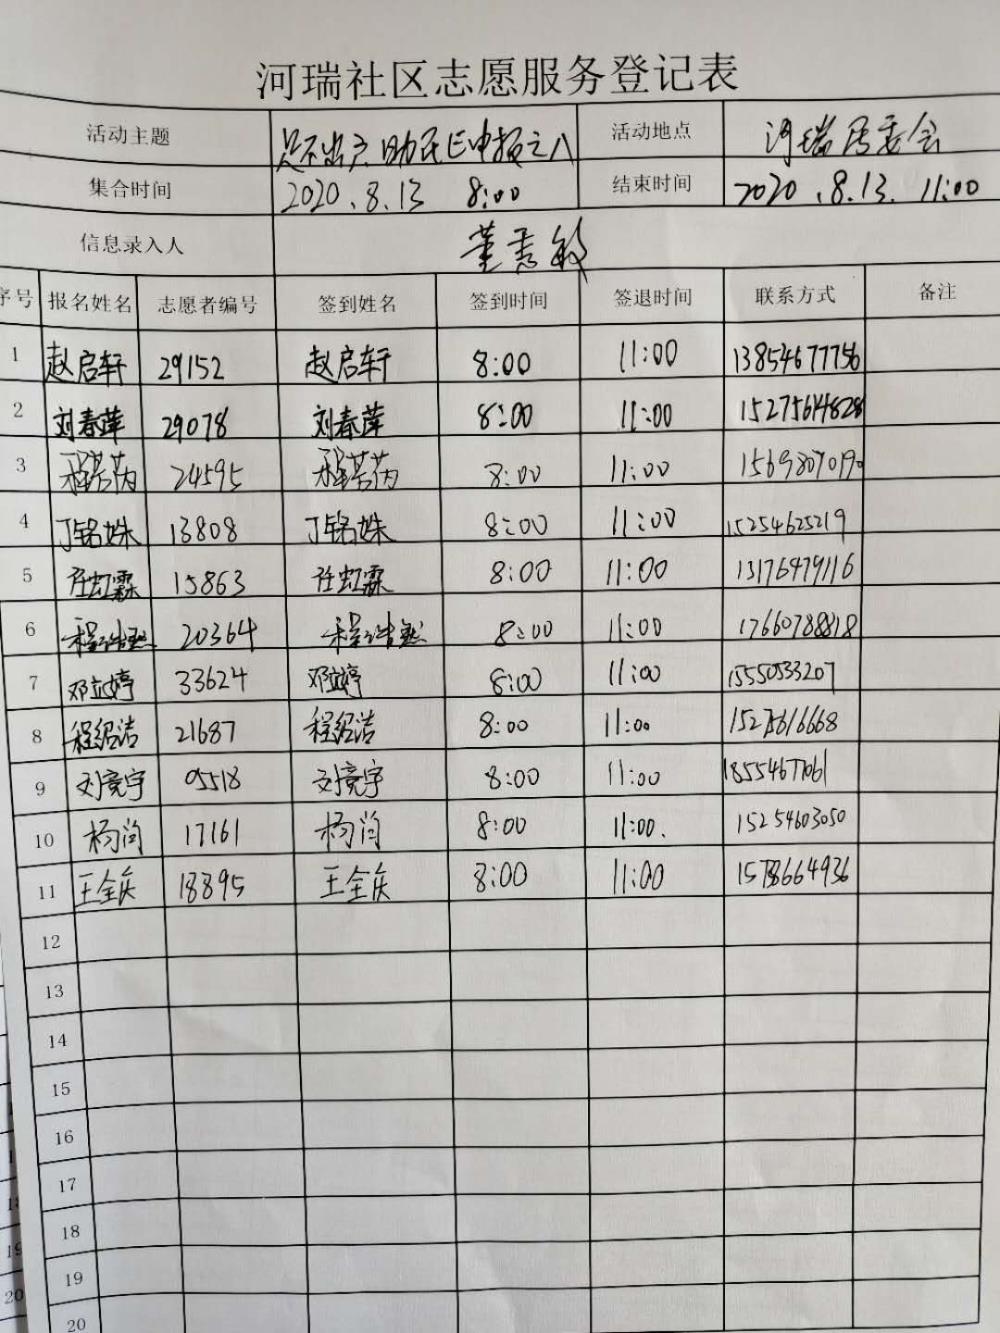 河瑞社区志愿服务登记表
活动主题 足不出户 助民E申报之八 活动地点 河瑞居委会
集合时间 2020.8.13 8:00 结束时间 2020.8.13. 11:00
信息录入人 董秀敏
序号 报名姓名 志愿者编号 签到姓名 签到时间 签退时间 联系方式 备注
1 赵启轩 29152 赵启轩 8:00 11:00 13854677756
2 刘春萍 29078 刘春萍 8:00 11:00 15275614828
3 程若芮 24595 程若芮 8:00 11:00 15698070190
4 丁铭姝 13808 丁铭姝 8:00 11:00 15254625219
5 任虹霖 15863 任虹霖 8:00 11:00 13176479116
6 程浩然 20364 程浩然 8:00 11:00 17660788818
7 邓立婷 33624 邓立婷 8:00 11:00 15550533207
8 程绍洁 21687 程绍洁 8:00 11:00
9 刘竞宇 05518 刘竞宇 8:00 11:00 18554671061
10 杨尚 17161 杨尚 8:00 11:00. 15254603050
11 王全庆 18895 王全庆 8:00 11:00
12
13
14
15
16
17
18
19
20